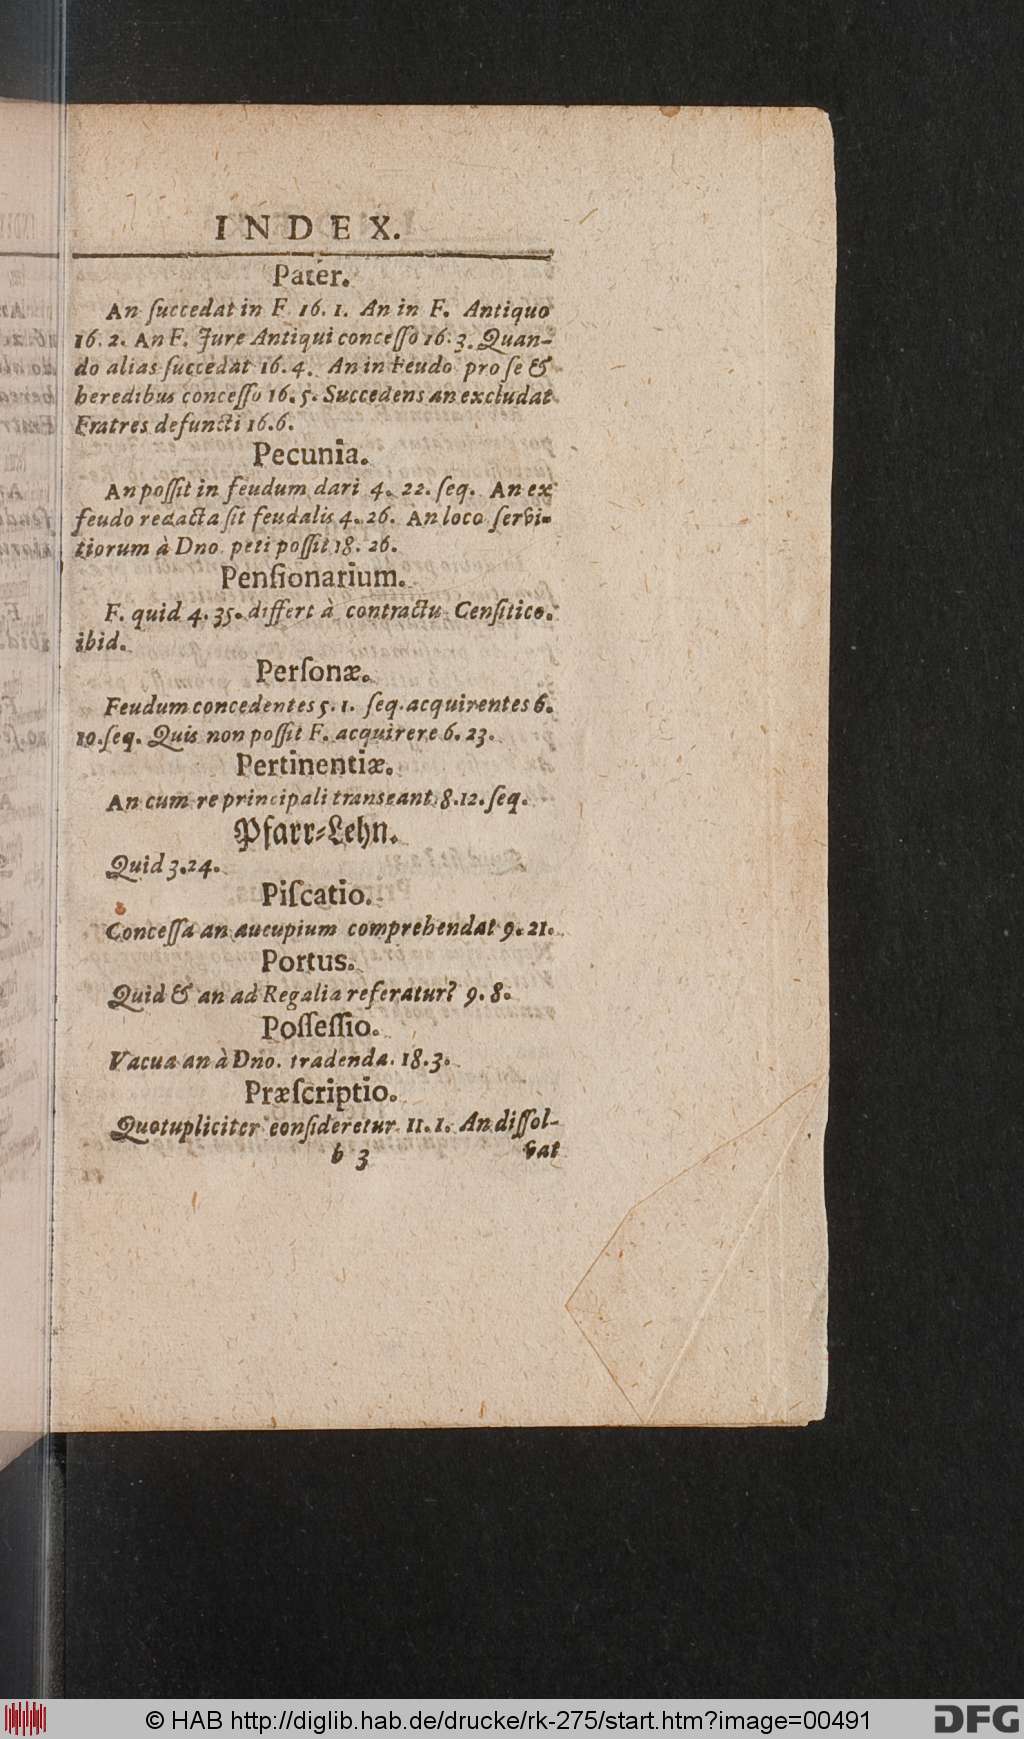 INDEX.
Pater.
An ſuccedat in F 16. 1. An in F. Antiquo
16. 2. An F. Jure Antiqui conceſſo 16. 3. Quan-
do alias ſuccedat 16. 4. An in Feudo pro ſe &
heredibus conceſſo 16. 5. Succedens an excludat
Fratres defuncti 16. 6.
Pecunia.
An poſſit in feudum dari 4. 22. ſeq. An ex
feudo redacta ſit feudalis 4. 26. An loco ſervi-
tiorum à Dno peti poſſit 18. 26.
Penſionarium.
F. quid 4. 35. differt à contractu Cenſitico.
ibid.
Perſonæ.
Feudum concedentes 5. 1. ſeq. acquirentes 6.
10. ſeq. Quis non poſſit F. acquirere 6. 23.
Pertinentiæ.
An cum re principali transeant 8. 12. ſeq.
Pfarr-Lehn.
Quid 3. 24.
Piſcatio.
Conceſſa an aucupium comprehendat 9. 21.
Portus.
Quid & an ad Regalia referatur? 9. 8.
Poſſeſſio.
Vacua an à Dno. tradenda. 18. 3.
Præſcriptio.
Quotupliciter conſideretur 11. 1. An diſſol-
b 3 vat
© HAB http://diglib.hab.de/drucke/rk-275/start.htm?image=00491
DFG